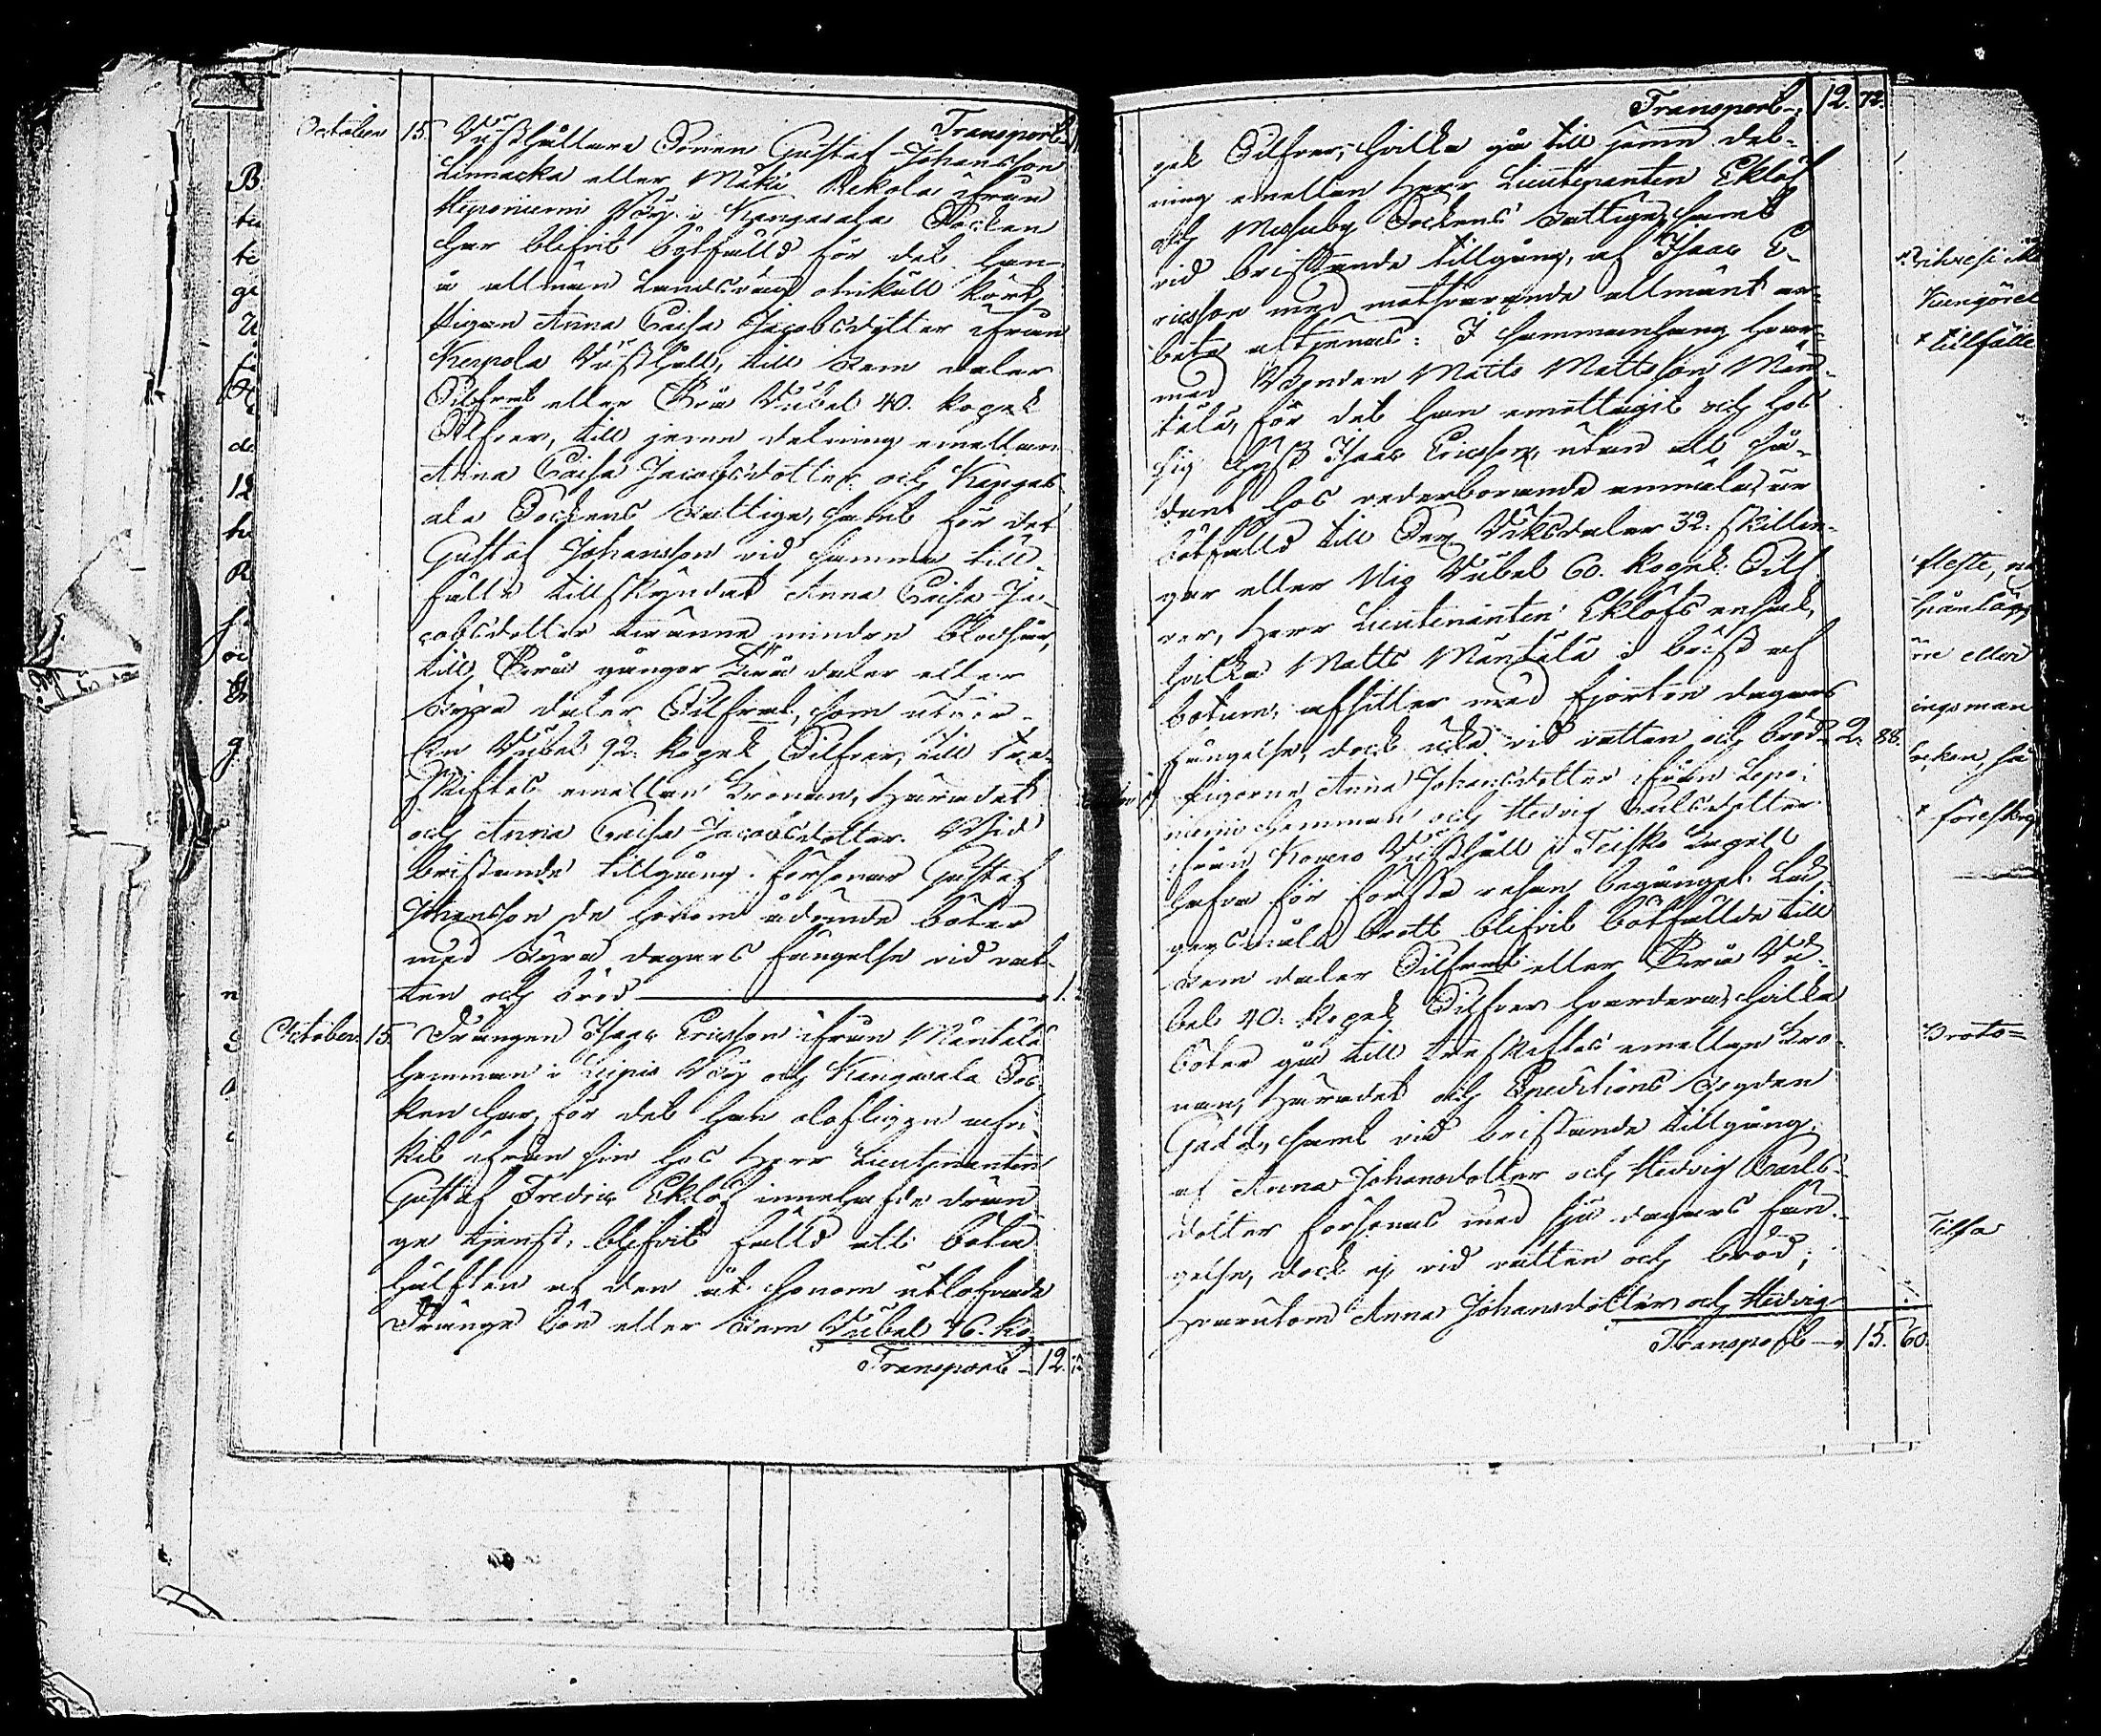 Transport
October 15. Rusthållare Sonen Gustaf Johansson
Linnacka eller Mäki Rekola ifrån
Heponiemi By i Kangasala Socken
har blifvit bötfälld för det han
å allmän Landsväg okufull kört
pigan Anna Caisa Jacobsdotter ifrån
Kerpola Rusthåll, till Fem daler
Silfvermt eller Två Rubel 40. kopek
Silfver, till jemn delning emellan
Anna Caisa Jacobsdotter och Kangas-
ala Sockens Fattige, samt för det
Gustaf Johansson vid samma till-
fälle tillskyndat Anna Caisa Ja-
cobsdotter tvänne mindre blodsår,
till Två gånger Två daler eller
Fyra daler Silfvermt, som utgör
En Rubel 92. kopek Silfver, till tre-
skiftes emellan Kronan, Häradet
och Anna Caisa Jacobsdotter. Vid
bristande tillgång försonar Gustaf
Johansson de honom ådömde böter
med Fyra dagars fängelse vid vat-
ten och bröd
October. 15. Drängen Isaac Ericsson ifrån Mäntälä
hemman i Liipis By och Kangasala Soc-
ken har, för det han olofligen afvi-
kit ifrån sin hos Herr Lieutenanten
Gustaf Fredric Eklöf innehafde drän-
ge tjenst, blifvit fälld att böta
hälften af den åt honom utlofvade
Dränge lön eller Fem Rubel 76. ko-
Transport 12.
Transport 12. 72.
pek Silfver, hvilka gå till jemn del-
ning emellan Herr Lieutenanten Eklöf
och Messuby Sockens Fattige, samt
vid bristande tillgång, af Isaac E-
ricsson med motsvarande allmänt ar-
bete aftjenas: I sammanhang hvar-
med Bonden Matts Mattsson Män-
tälä, för det han emottagit och hos
sig hyst Isaac Ericsson, utan att så-
dant hos vederbörande anmäla, är
bötfälld till Sex Riksdaler 32. skillin-
gar eller Nio Rubel 60. kopek Silf-
ver, Herr Lieutenanten Eklöfs ensak,
hvilka Matts Mäntälä i brist af
botum, afsitter med fjorton dagars
fängelse, dock icke vid vatten och bröd 2. 88.
Pigorne Anna Johansdotter ifrån Lepo-
niemi hemman och Hedvig Carlsdotter
ifrån Kovero Rusthåll i Teisko Capell
hafva för första resan begånget Lä-
gersmåls brott blifvit bötfällde till
Fem daler Silfvermt eller Två Ru-
bel 40. kopek Silfver hvardera, hvilka
böter gå till treskiftes emellan Kro-
nan, Häradet och Expeditions Fogden
Gadd, samt vid bristande tillgång,
af Anna Johansdotter och Hedvig Carls-
dotter försonas med sju dagars fän-
gelse, dock ej vid vatten och bröd;
Hvarutom Anna Johansdotter och Hedvig
Transport 15. 60.
Kungörel
tillfälle
fleste,
eller
ingsman
ocken, så
Proto=